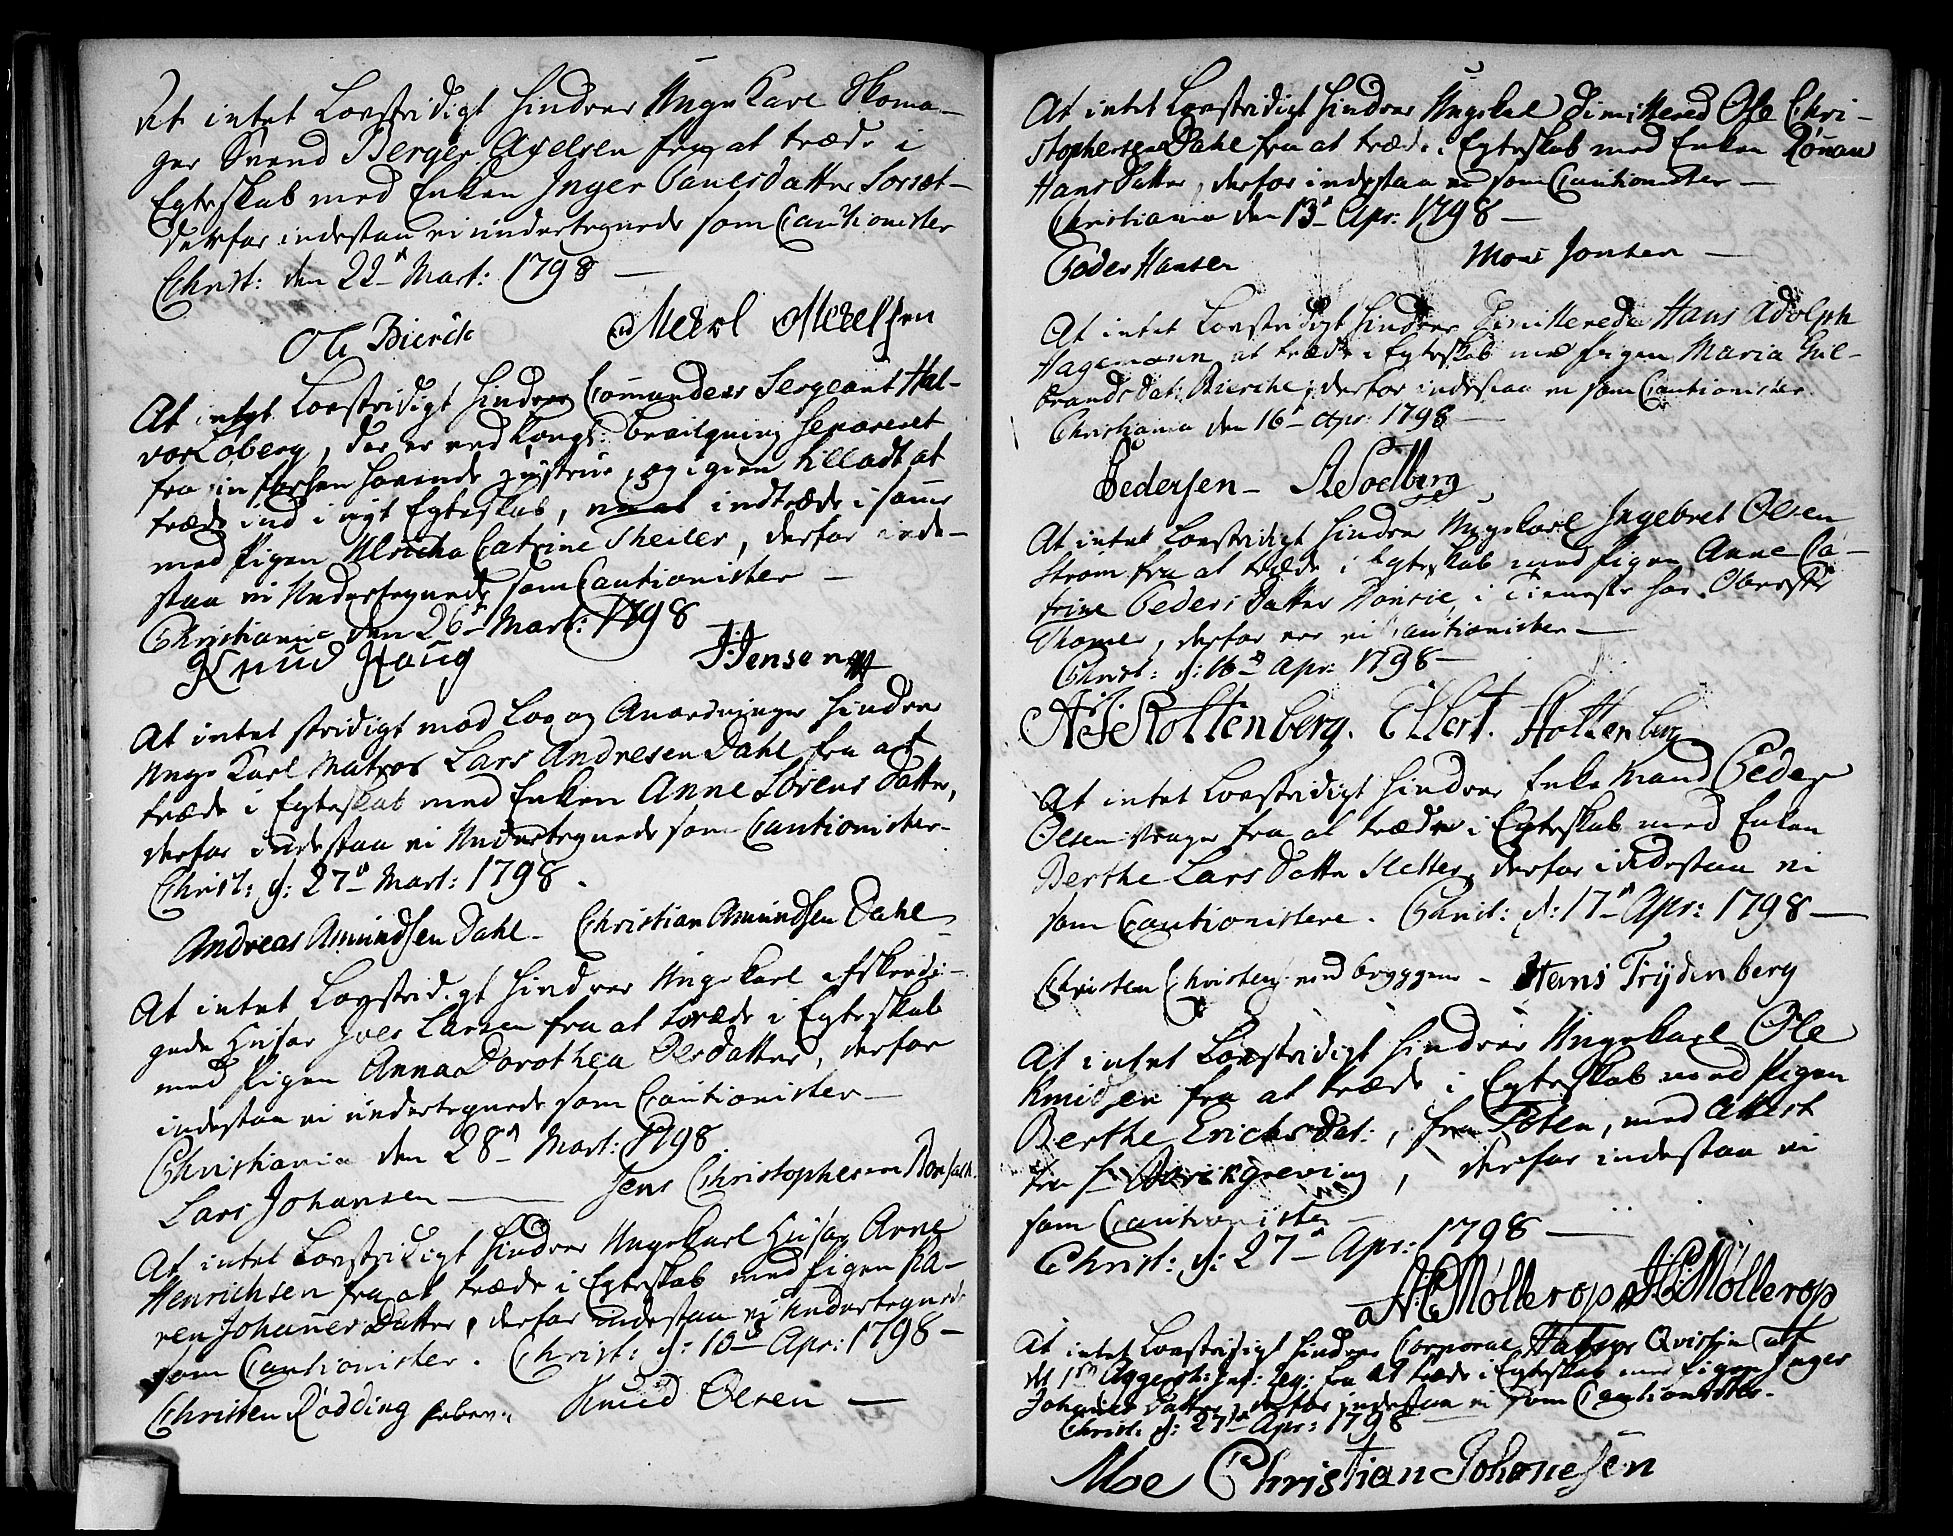 At intet Lovstridigt hindrer Unge Karl Skoma-
ger Svend Berger Axelsen fra at træde i
Egteskab med Enken Inger Poulsdatter
derfor indestaa vi undertegnede som Cautionister
Christ: den 22 Mart: 1798 —
Ole Bierck
At intet Lovstridigt hindrer Commandeur Sergeant Hal-
vor Loberg, der er ved Kongl: bevilgning separeret
fra sin forhen havende Hustrue, og igien tilladt at
træde ind i nyt Egteskab, indtræde i samme
med Pigen Ulricha Catrine Sheiler, derfor inde-
staa vi Undertegnede som Cautionister —
Christiania den 26 Mart: 1798
Knud Haug J. Jensen
At intet stridigt mod Lov og Anordninger hindrer
Unge Karl Matros Lars Andresen Dahl fra at
træde i Egteskab med Enken Anne Sørens Datter,
derfor indestaa vi Undertegnede som Cautionister
Christ: d: 27 Mart: 1798.
Andreas Amundsen Dahl — Christian Amundsen Dahl
At intet Lovstridigt hindrer Ungekarl afskedi-
gede Husar Joes Larsen fra at træde i Egteskab
med Pigen Anna Dorothea Olsdatter, derfor
indestaa vi undertegnede som Cautionister —
Christiania den 28 Mart: 1798
Lars Johansen — Jens Christophersen
At intet Lovstridigt hindrer Ungekarl Husar Arne
Henrichsen fra at træde i Egteskab med Pigen Ka-
ren Johannes Datter, derfor indestaa vi Undertegnede
som Cautionister. Christ: d: 10 Apr: 1798 —
Christen Rødding Knud Olsen —
At intet Lovstridigt hindrer Ungekarl Dimittered Ole Chri-
stophersen Dahl fra at træde i Egteskab med Enken
Hans Datter, derfor indestaa vi som Cautionister —
Christiania den 13 Apr: 1798 —
Peder Hansen Mons Jonsen —
At intet Lovstridigt hindrer Dimitterede Hans Adolph
Hagemann at træde i Egteskab med Pigen Maria Gul-
brands Dat: Bierche, derfor indestaa vi som Cautionister
Christiania den 16 Apr: 1798 —
Pedersen —
At intet Lovstridigt hindrer Ungekarl Ingebret Olsen
Strøm fra at træde i Egteskab med Pigen Anne Ca-
trine Peders Datter i Tieneste hos Oberste
derfor ere vi Cautionister —
Christ: d: 16 Apr: 1798 —
Rottenberg. Ellert. Rottenberg
At intet Lovstridigt hindrer Enke Mand Peder
Olsen fra at træde i Egteskab med Enken
Berthe Lars Datter Sletter, derfor indestaa vi
som Cautionistere. Christ: d: 17 Apr: 1798 —
Christen Christens: ved bryggen — Hans Frydenberg
At intet Lovstridigt hindrer Ungekarl Ole
Knudsen fra at træde i Egteskab med Pigen
Berthe Erichsdat:, fra Toten, med Attest
fra derfor indestaa vi
som Cautionister —
Christ: d: 27 Apr: 1798 —
Møllerop Møllerop
At intet Lovstridigt hindrer Corporal Qvist af
det 1ste Aggersh: Inf: Reg: fra at træde i Egteskab med Pigen Inger
Johannes Datter, derfor indestaa vi som Cautionister.
Christ: d: 27 Apr: 1798 —
Moe Christian Johanesen